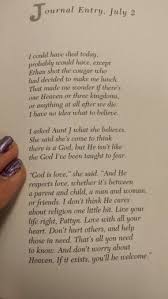 Journal Entry, July 2
I could have died today,
probably would have, except
Ethan shot the cougar who
had decided to make me lunch.
That made me wonder if there's
one Heaven or three kingdoms,
or anything at all after we die.
I have no idea what I believe.
I asked Aunt J what she believes.
She said she's come to think
there is a God, but He isn't like
the God I've been taught to fear.
"God is love," she said. "And He
respects love, whether it's between
a parent and child, a man and woman,
or friends. I don't think He cares
about religion one little bit. Live your
life right, Pattyn. Love with all your
heart. Don't hurt others, and help
those in need. That's all you need
to know. And don't worry about
Heaven. If it exists, you'll be welcome."